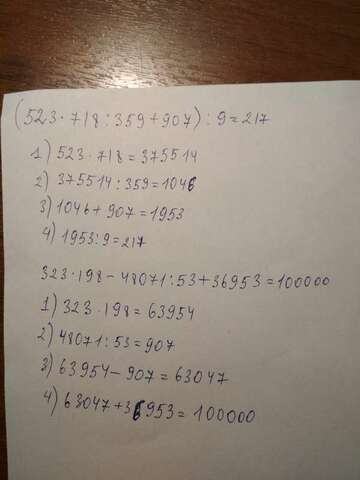 (523·718:359+907):9=217
1) 523·718=375514
2) 375514:359=1046
3) 1046+907=1953
4) 1953:9=217
323·198-48071:53+36953=100000
1) 323·198=63954
2) 48071:53=907
3) 63954-907=63047
4) 63047+36953=100000